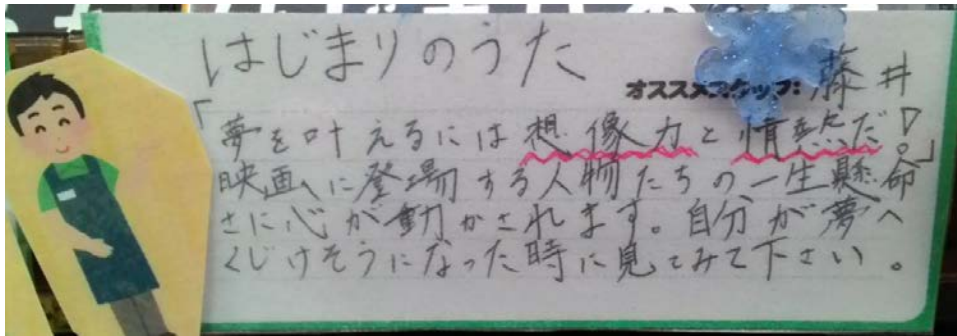 はじまりのうた
オススメスタッフ: 藤井
「夢を叶えるには想像力と情熱だ!」
映画に登場する人物たちの一生懸命
さに心が動かされます。自分が夢へ
くじけそうになった時に見てみて下さい。